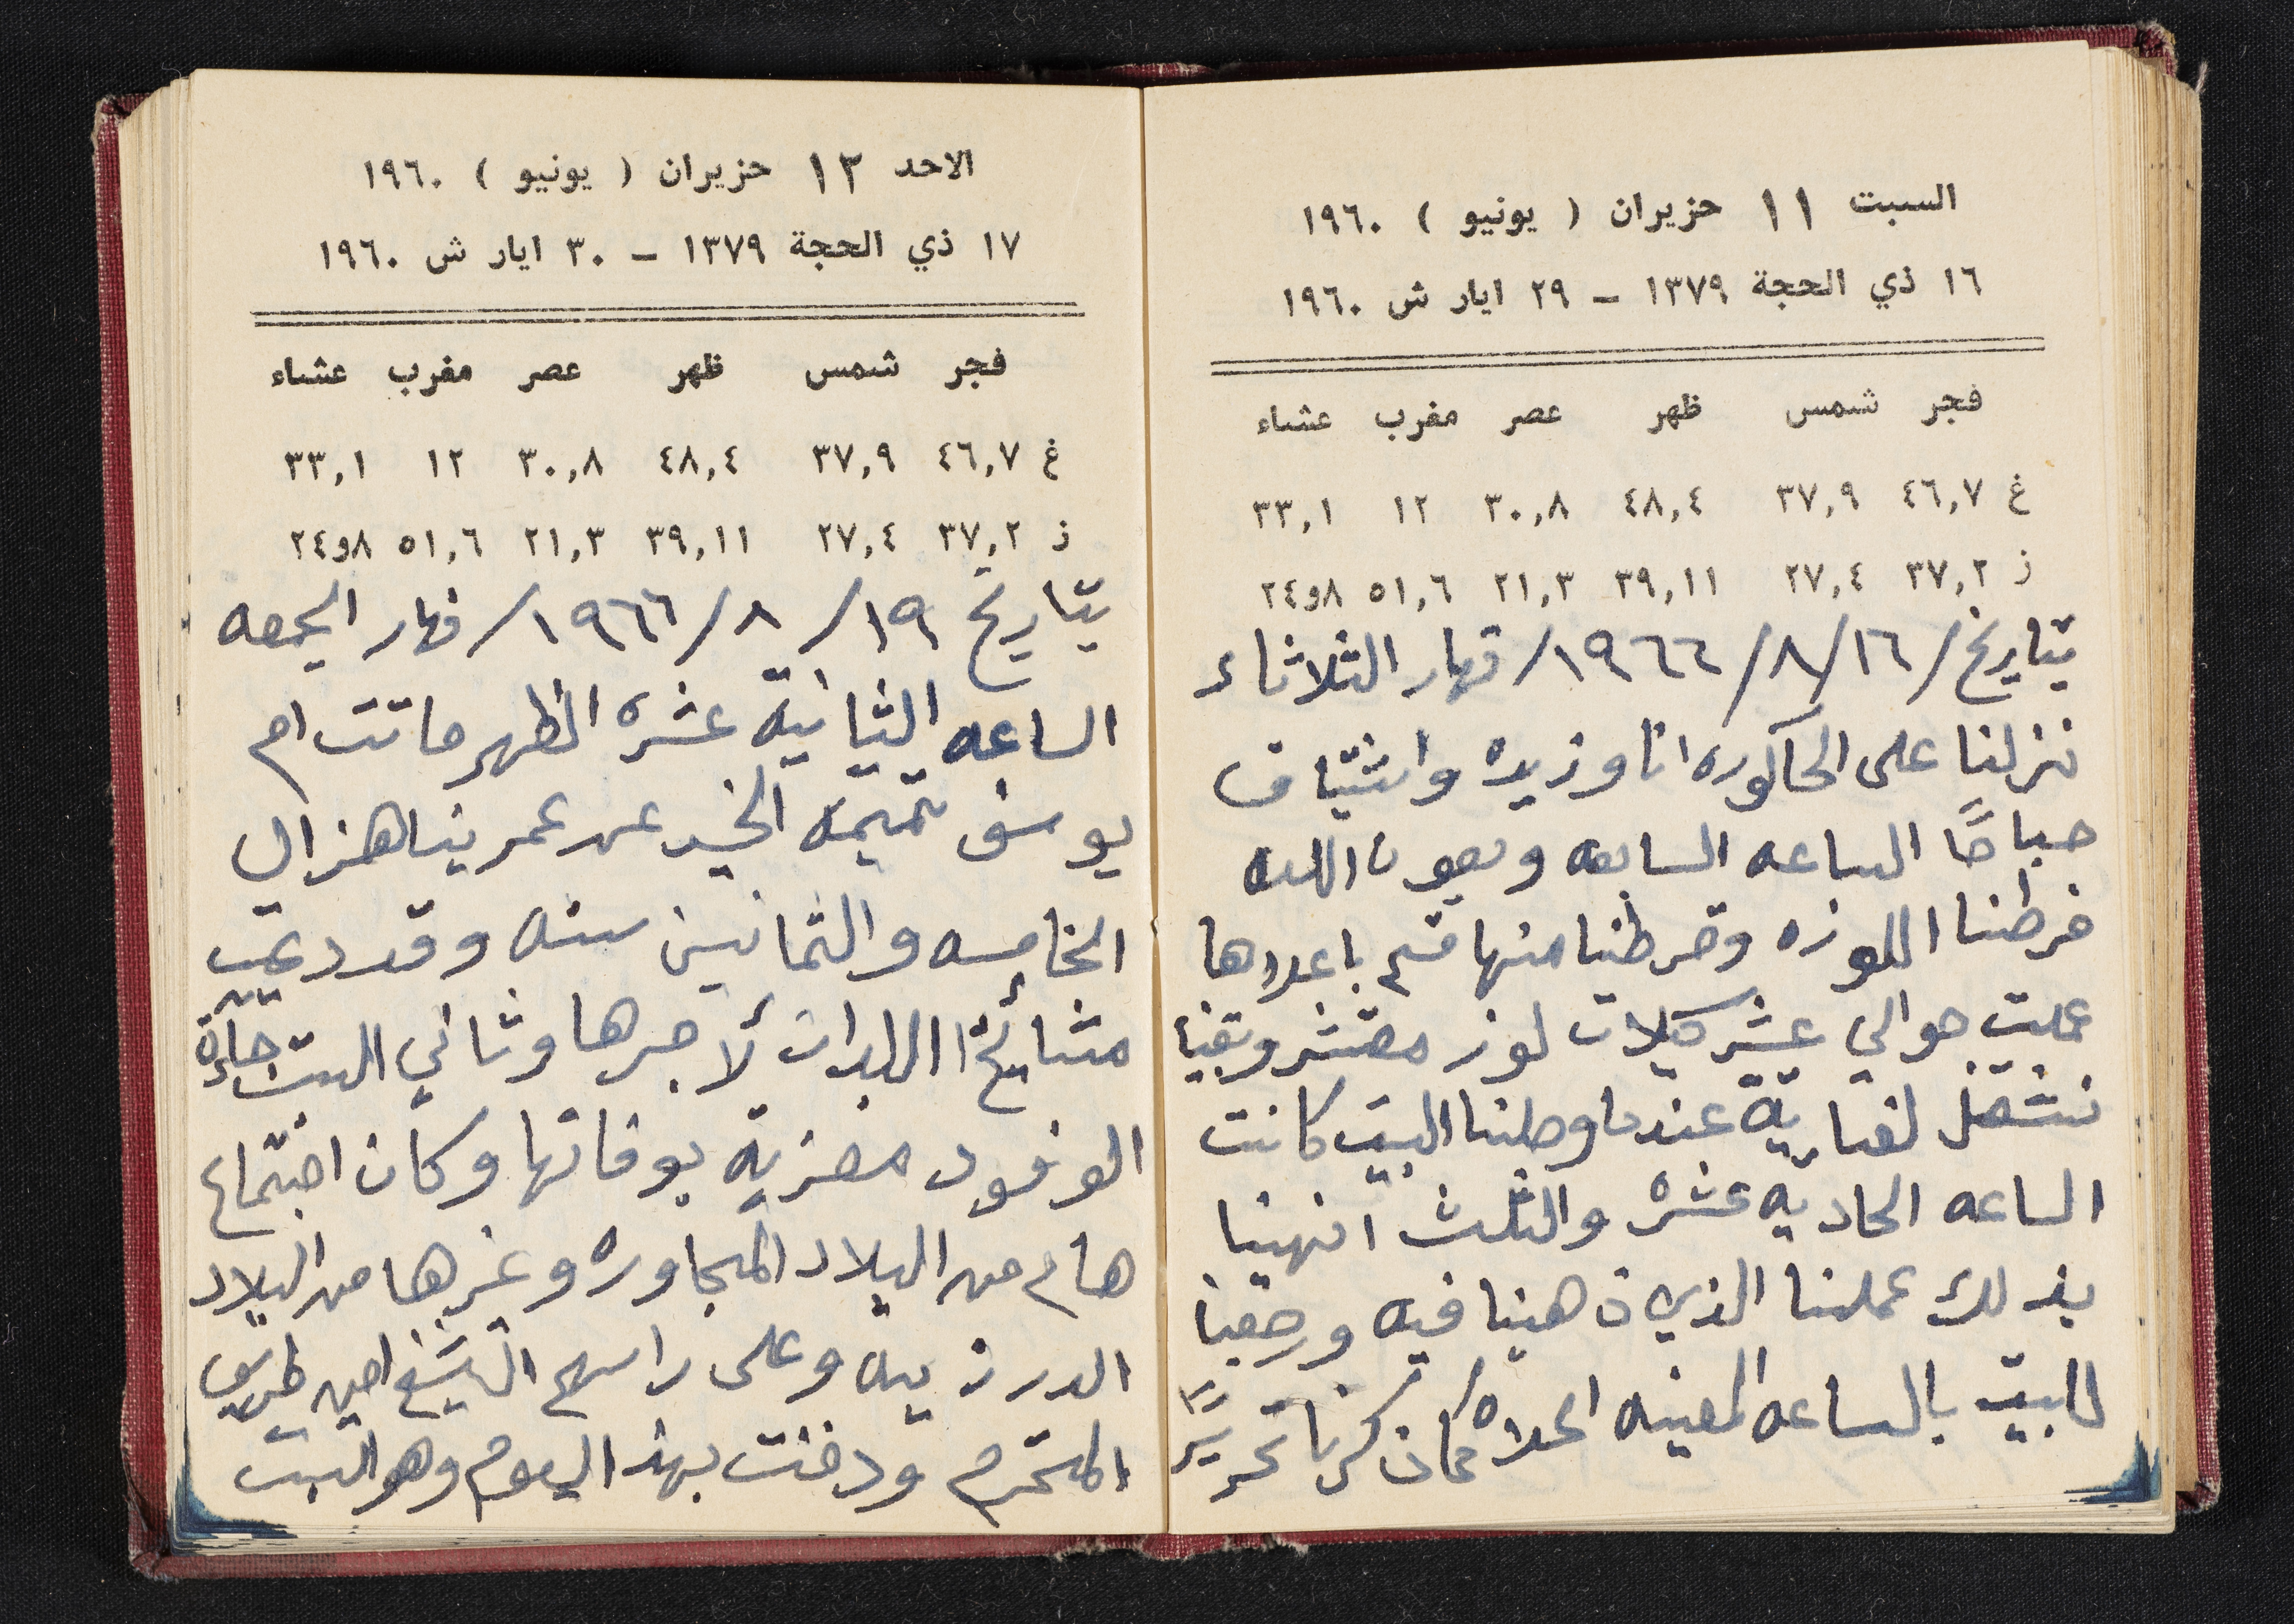 السبت ١١ حزيران ( يونيو ) ١٩٦٠
١٦ ذي الحجة ١٣٧٩ – ٢٩ ايار ش ١٩٦٠
فجر شمس ظهر عصر مغرب عشاء
غ ٤٦,٧ ٣٧,٩ ٤٨,٤ ٣٠,٨ ١٢ ٣٣,١
ز ٣٧,٢ ٢٧,٤ ٣٩,١١ ٢١,٣ ٥١,٦ ٨و٢٤
بتاريخ /١٦/٨/١٩٦٦/ نهار الثلاثاء
نزلنا على الحاكوره انا وزيده واشتياق
صباحًا الساعه السابعه وبعون الله
فرطنا اللوزه وقرطنا منها قسم باعلاها
عملت حوالي عشر كيلات لوز مقشر وبقينا
نشتغل لغاية عندما وصلنا البيت كانت
الساعه الحاديه عشره والثلث انهينا
بذلك عملنا الذي ذهبنا فيه ورجعنا
للبيت بالساعه المعينه اعلاه كما ذكرنا تحريرًا
الاحد ١٢ حزيران ( يونيو ) ١٩٦٠
١٧ ذي الحجة ١٣٧٩ – ٣٠ ايار ش ١٩٦٠
فجر شمس ظهر عصر مغرب عشاء
غ ٤٦,٧ ٣٧,٩ ٤٨,٤ ٣٠,٨ ١٢ ٣٣,١
ز ٣٧,٢ ٢٧,٤ ٣٩,١١ ٢١,٣ ٥١,٦ ٨و٢٤
بتاريخ ١٩/٨/١٩٦٦/ نهار الجمعه
الساعه الثانية عشره الظهر ماتت ام
يوسف تميمه الخير عن عمر يناهز ال
الخامسه والثمانين سنه وقد دعيت
مشايخ البلدان لأجرها وثاني السبت جاءة
الوفود معزية بوفاتها وكان اجتماع
هام من البلاد المجاوره وغيرها من البلاد
الدرزيه وعلى راسهم الشيخ امين طريف
المحترم ودفنت بهذا اليوم وهو السبت